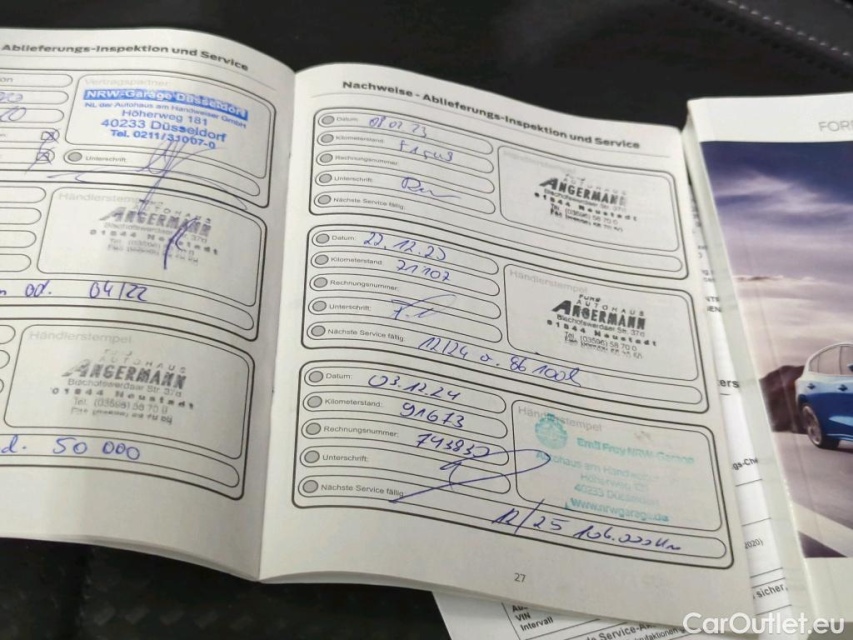 Ablieferungs-Inspektion und Service
NRW-Garage Düsseldorf
NL der Autohaus am Handweiser GmbH
Höherweg 181
40233 Düsseldorf
Tel. 0211/31007-0
Unterschrift:
Händlerstempel
AUTOHAUS
ANGERMANN
Bischofswerdaer Str. 37d
01844 Neustadt
od. 04/22
Händlerstempel
AUTOHAUS
ANGERMANN
Bischofswerdaer Str. 37d
01844 Neustadt
Tel. (03596) 58 70 0
d. 50 000
Nachweise - Ablieferungs-Inspektion und Service
Datum:
Kilometerstand:
Rechnungsnummer:
Unterschrift:
Nächste Service fällig:
ANGERMANN
Bischofswerdaer Str. 37d
01844 Neustadt
Datum: 22.12.23
Kilometerstand: 71102
Rechnungsnummer:
Unterschrift:
Nächste Service fällig: 12/24 o. 86100
Händlerstempel
FORD
AUTOHAUS
ANGERMANN
Bischofswerdaer Str. 37d
01844 Neustadt
Tel. (03596) 58 70 0
Datum: 03.12.24
Kilometerstand: 91673
Rechnungsnummer: 743837
Unterschrift:
Nächste Service fällig: 12/25 106.000 Km
Händlerstempel
Emil Frey NRW-Garage
Autohaus am Handweiser
Höherweg
40233 Düsseldorf
www.nrwgarage.de
27
FOR
ers
2020)
sicher,
VIN
Intervall
CarOutlet.eu